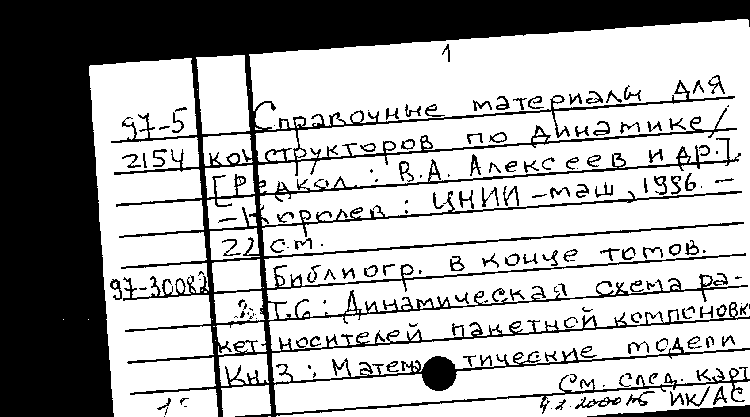 1
97-5 Справочные материалы для
2154 конструкторов по динамике/
[Редкол.: В.А. Алексеев и др.].
- Королев: ЦНИИ-маш, 1996. -
22 см.
Библиогр. в конце томов.
97-30082
Т.6: Динамическая схема ра-
кет-носителей пакетной компоновк
Кн.3: Матем тические модели
См. след. карт
ИК/АС